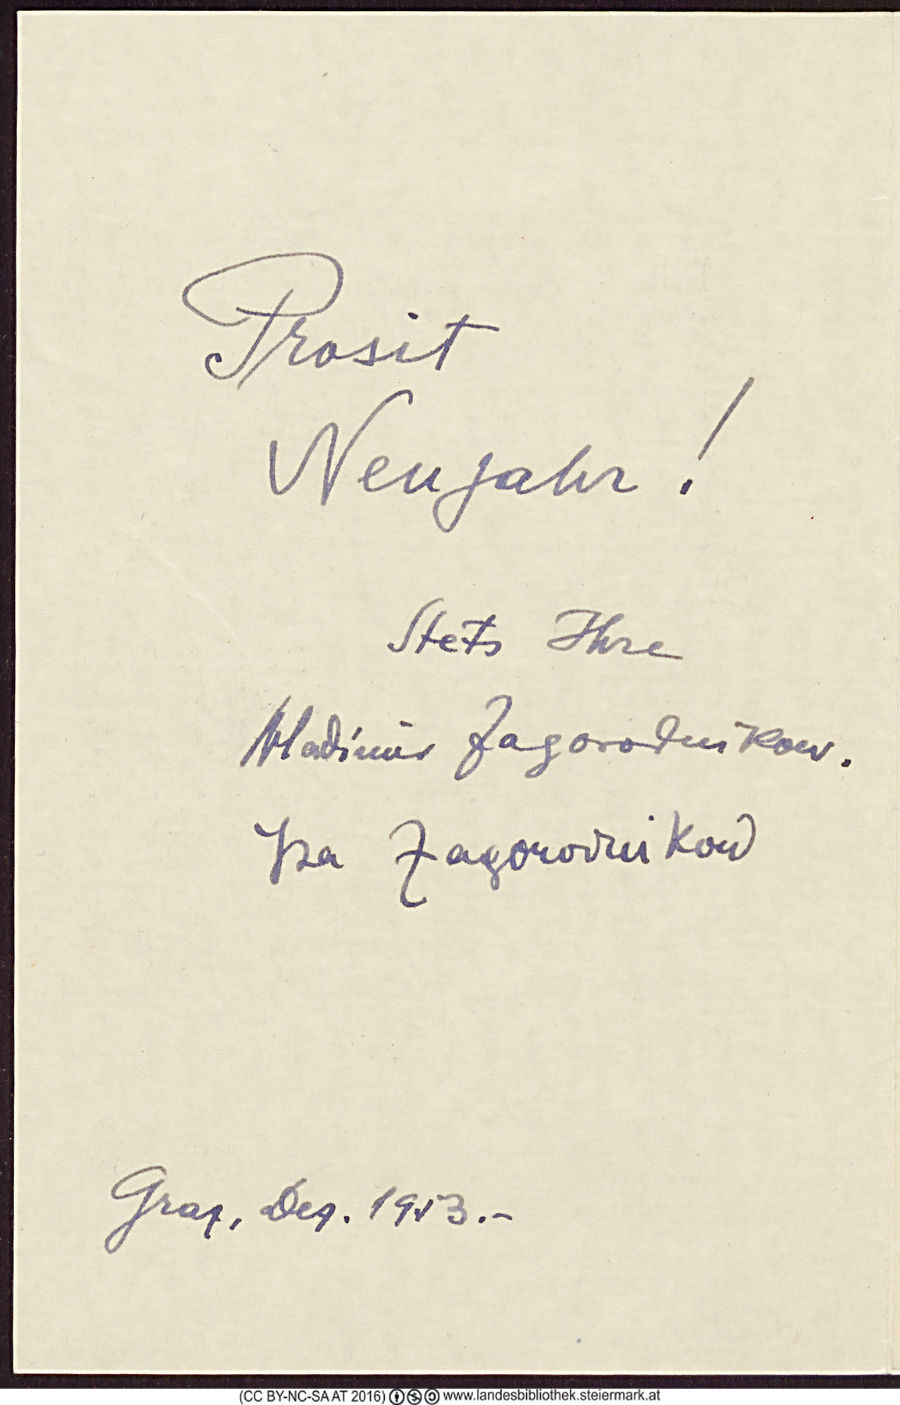 Prosit
Neujahr!
Stets Ihre
Wladimir Zagorodnikow.
Isa Zagorodnikow
Graz, Dez. 1953.-
(CC BY-NC-SA AT 2016) www.landesbibliothek.steiermark.at